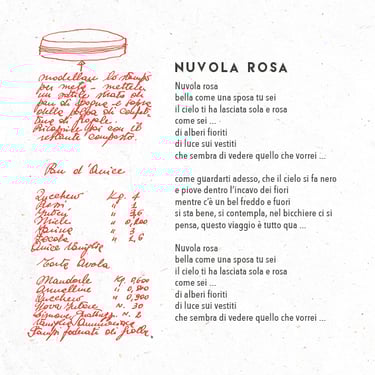 modellare lo stampo
per metà - mettere
un sottile strato di
pan di spagna e sopra
della polpa di
di fragole.
Ricoprire poi con il
restante composto.
Pan d'Anice
Zucchero Kg. 4
Rossi " 1
" 3,6
Miele " 0,200
Farina " 3
Fecola " 1,6
Anice Vaniglia
Torta Avola
Mandorle Kg. 0,600
Armelline " 0,200
Zucchero " 0,900
Uova intere N. 30
Limone grattugg. N. 2
Vaniglia
NUVOLA ROSA
Nuvola rosa
bella come una sposa tu sei
il cielo ti ha lasciata sola e rosa
come sei ...
di alberi fioriti
di luce sui vestiti
che sembra di vedere quello che vorrei ...
come guardarti adesso, che il cielo si fa nero
e piove dentro l'incavo dei fiori
mentre c'è un bel freddo e fuori
si sta bene, si contempla, nel bicchiere ci si
pensa, questo viaggio è tutto qua ...
Nuvola rosa
bella come una sposa tu sei
il cielo ti ha lasciata sola e rosa
come sei ...
di alberi fioriti
di luce sui vestiti
che sembra di vedere quello che vorrei ...